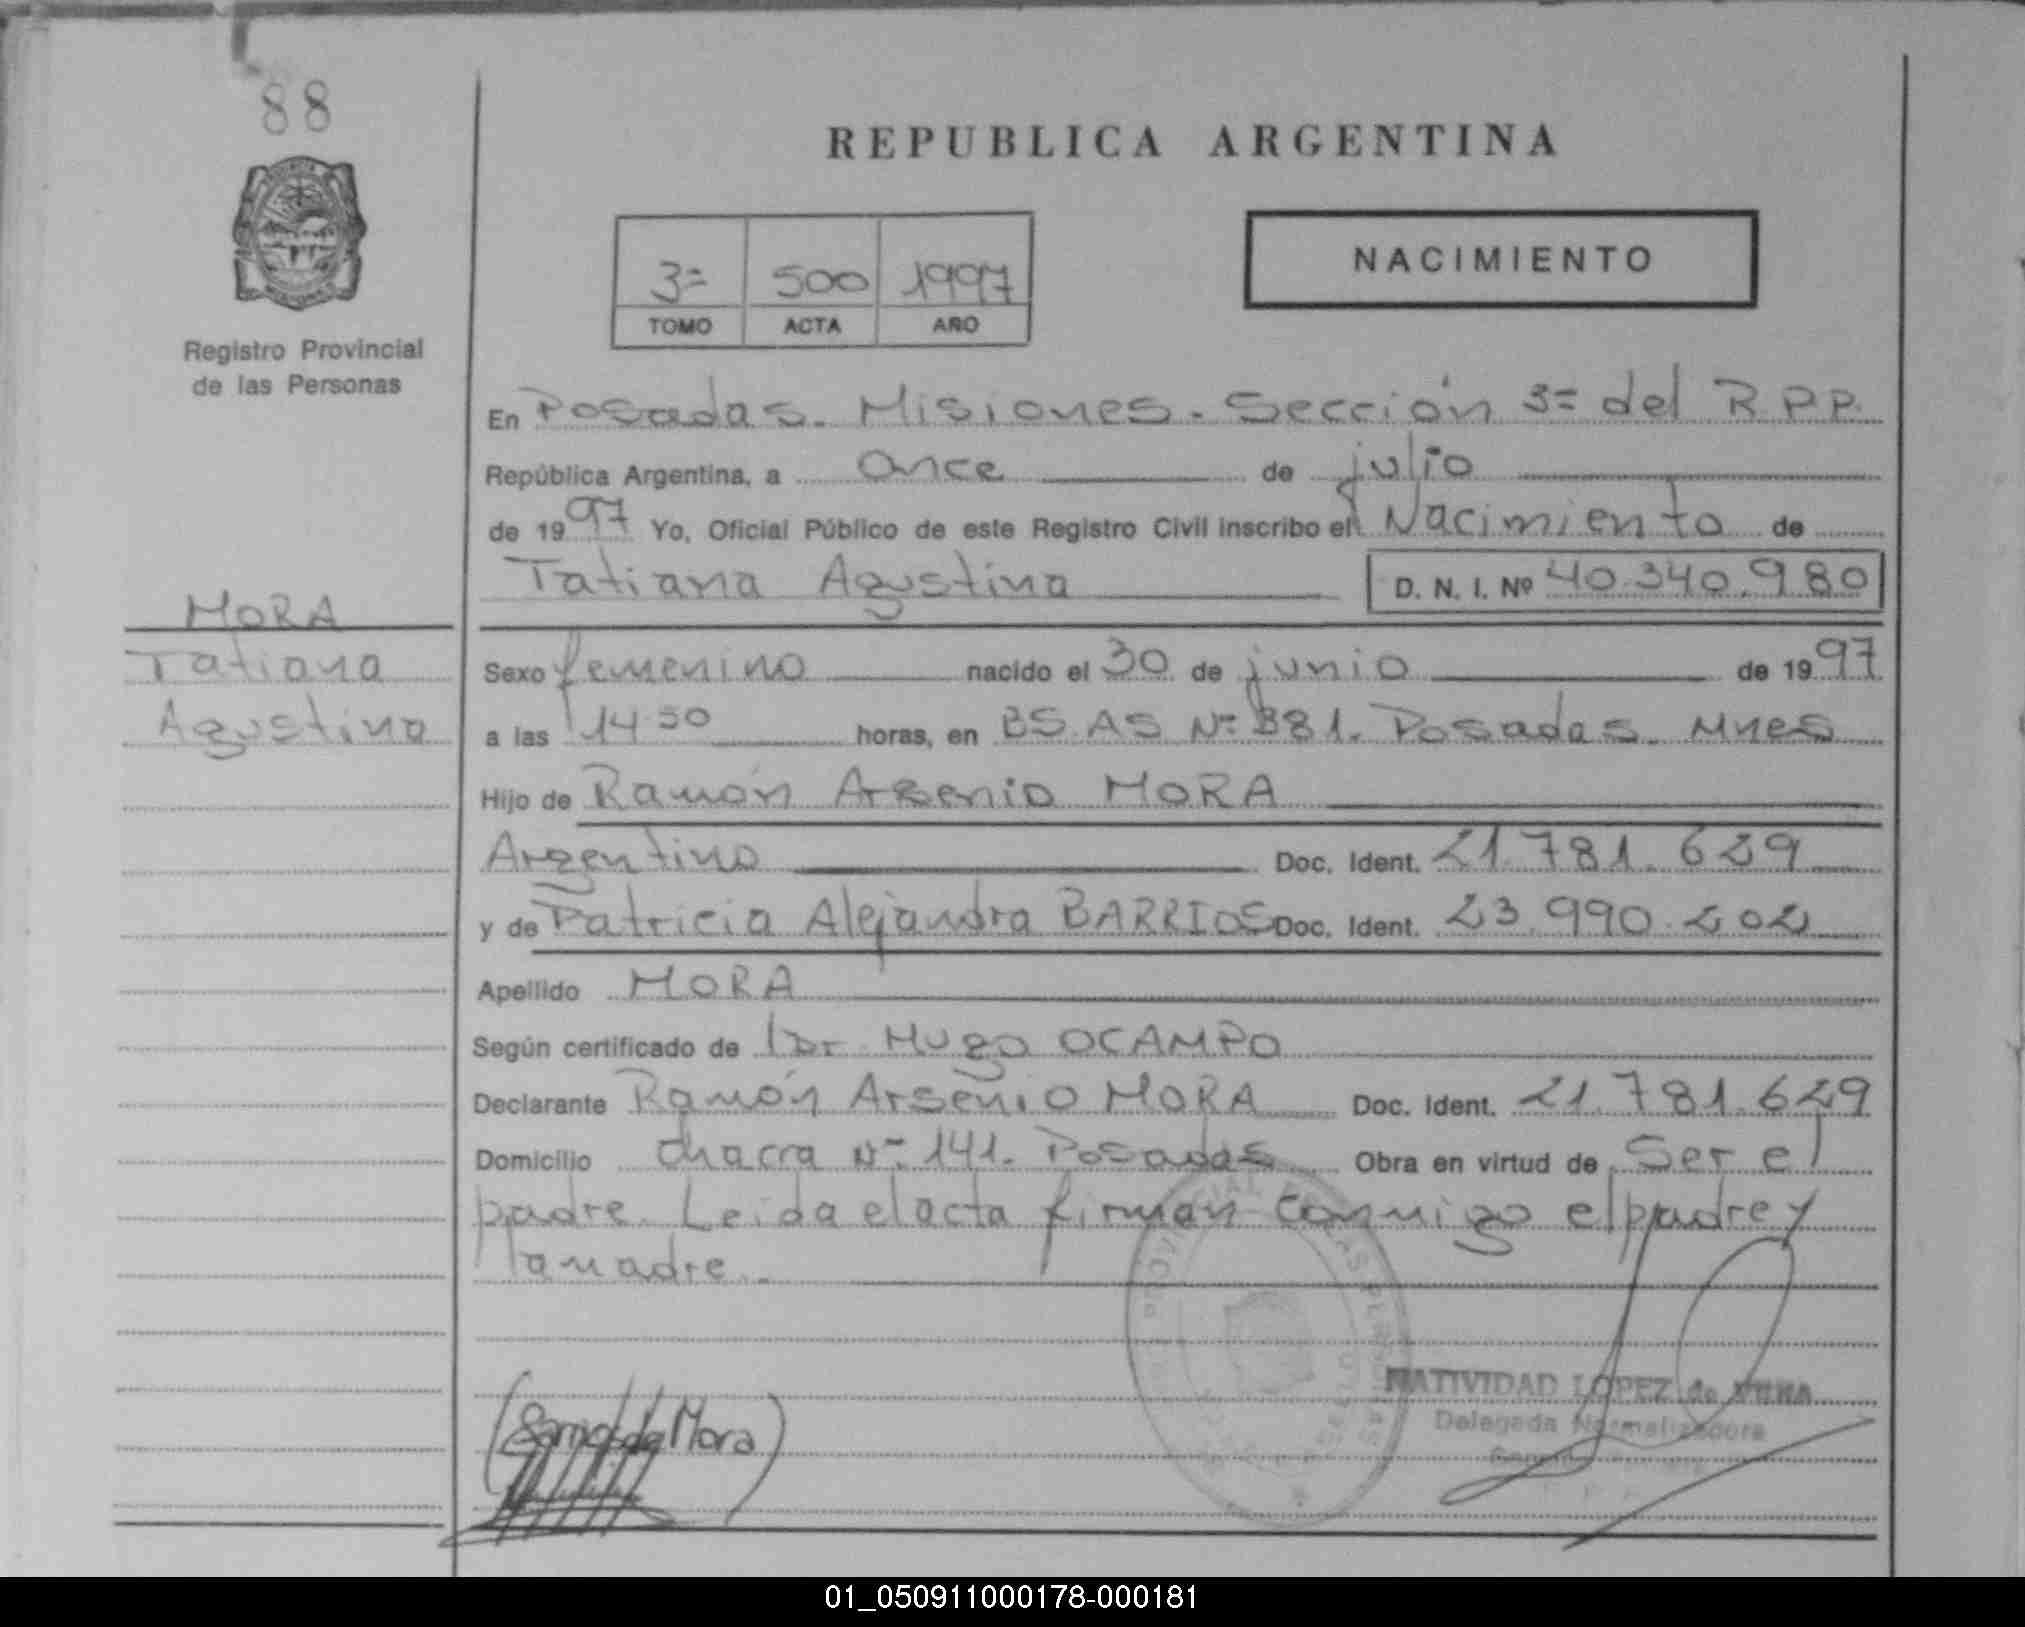 88
REPUBLICA ARGENTINA
3ª 500 1997
TOMO ACTA AÑO
NACIMIENTO
Registro Provincial
de las Personas
En Posadas. Misiones. Sección 3ª del R.P.P.
República Argentina, a once de julio
de 1997 Yo, Oficial Público de este Registro Civil inscribo el Nacimiento de
Tatiana Agustina D. N. I. Nº 40.340.980
MORA
Tatiana
Agustina
Sexo femenino nacido el 30 de junio de 1997
a las 14 50 horas, en BS. AS Nº 881. Posadas. Mnes
Hijo de Ramón Arsenio MORA
Argentino Doc. Ident. 21.781.629
y de Patricia Alejandra BARRIOS Doc. Ident. 23.990.202
Apellido MORA
Según certificado de Dr. Hugo OCAMPO
Declarante Ramón Arsenio MORA Doc. Ident. 21.781.629
Domicilio chacra Nº 141. Posadas Obra en virtud de Ser el
padre. Leida el acta firman conmigo el padre y
la madre.
NATIVIDAD LOPEZ de
Delegada Normalizadora
de Mora
01_050911000178-000181